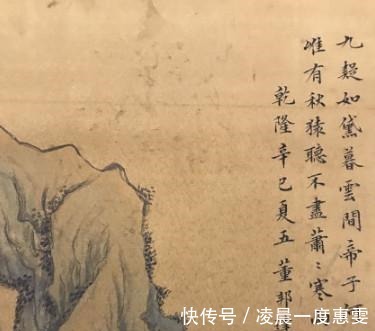 九疑如黛暮雲間帝子
惟有秋猿聽不盡蕭〻寒
乾隆辛巳夏五董邦
快传号 / 凌晨一度惠雯